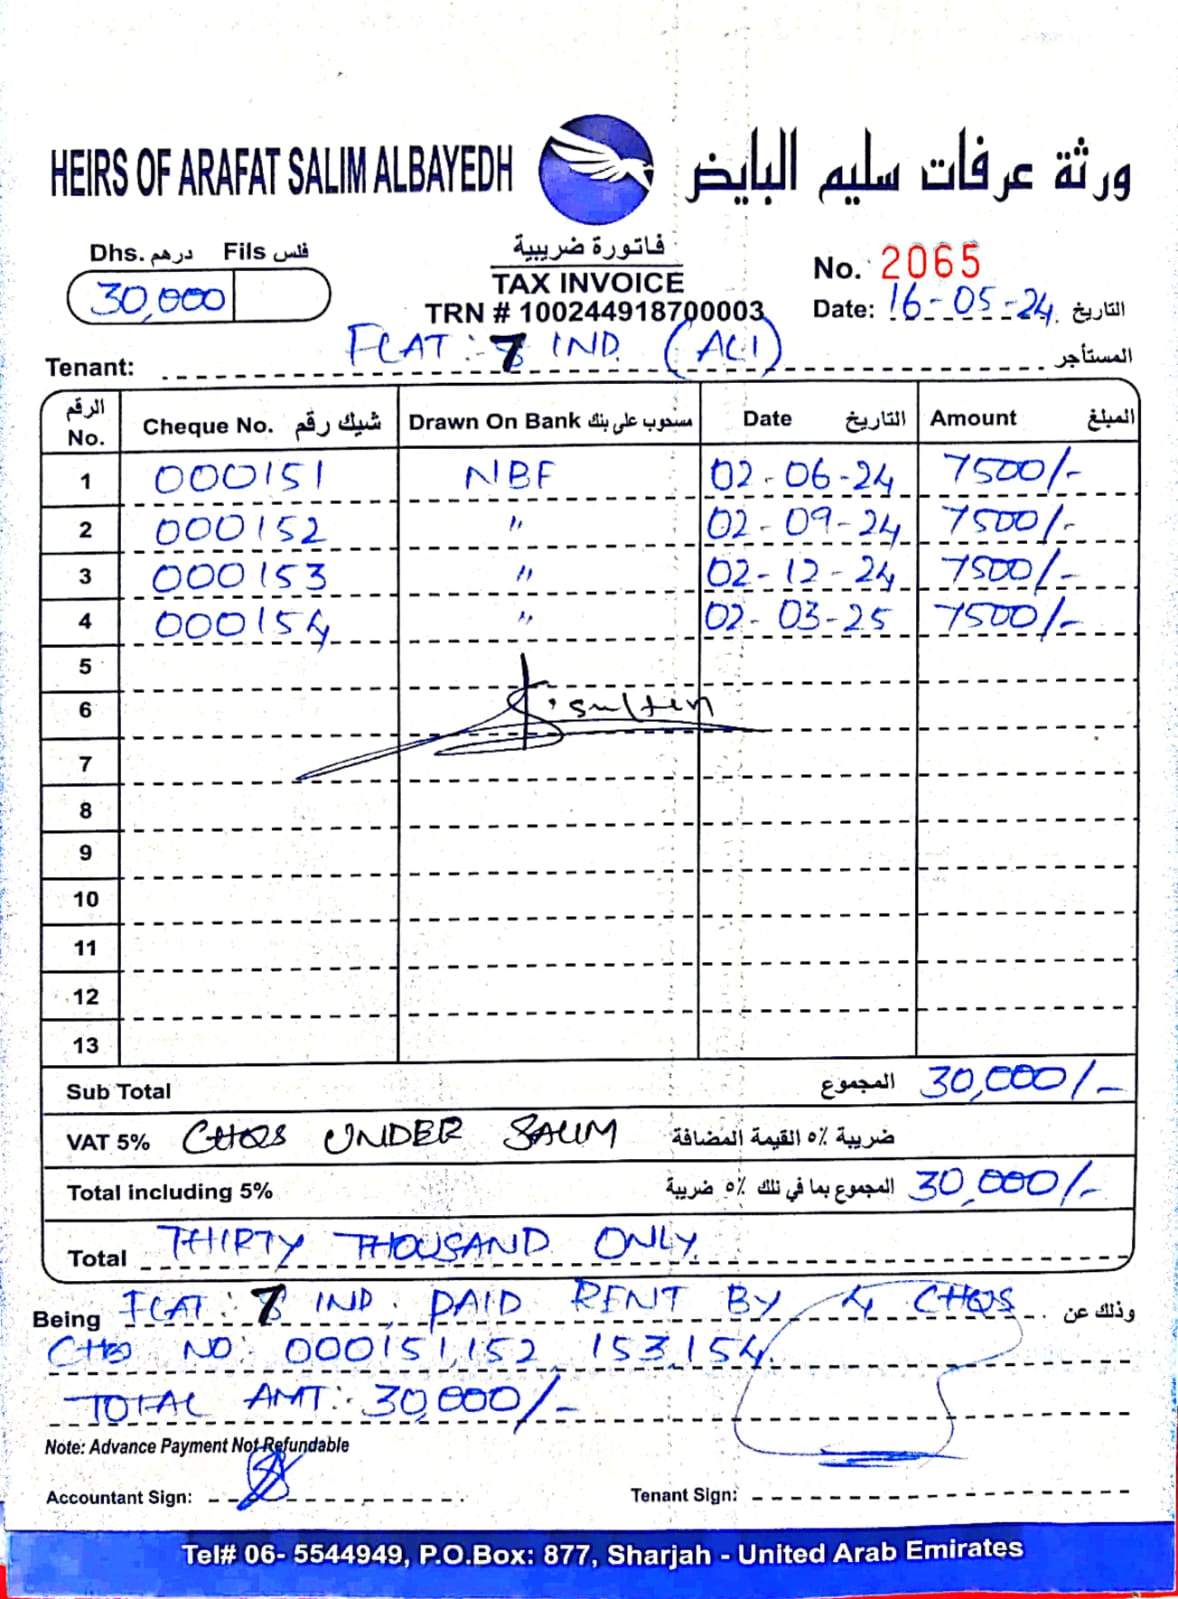 HEIRS OF ARAFAT SALIM ALBAYEDH ورثة عرفات سليم البايض
Dhs. درهم Fils فلس
30,000
فاتورة ضريبية
TAX INVOICE
TRN # 100244918700003
No. 2065
Date: 16-05-24 التاريخ
Tenant: FLAT : 7 IND. (ALI) المستأجر
الرقم No. Cheque No. شيك رقم Drawn On Bank مسحوب على بنك Date التاريخ Amount المبلغ
1 000151 NBF 02-06-24 7500/-
2 000152 〃 02-09-24 7500/-
3 000153 〃 02-12-24 7500/-
4 000154 〃 02-03-25 7500/-
5
6 sulten
7
8
9
10
11
12
13
Sub Total المجموع 30,000/-
VAT 5% CHQS UNDER SALIM ضريبة ٥% القيمة المضافة
Total including 5% المجموع بما في ذلك ٥% ضريبة 30,000/-
Total THIRTY THOUSAND ONLY.
Being FLAT : 7 IND. PAID RENT BY 4 CHQS وذلك عن
CHQ NO: 000151,152, 153,154.
TOTAL AMT: 30,000/-
Note: Advance Payment Not Refundable
Accountant Sign: Tenant Sign:
Tel# 06- 5544949, P.O.Box: 877, Sharjah - United Arab Emirates